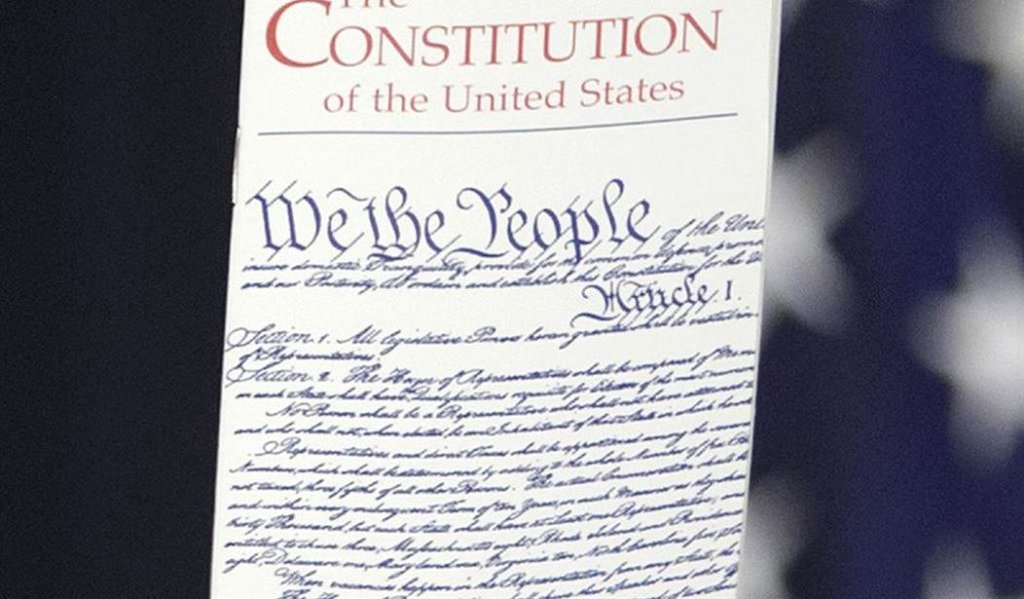 The
CONSTITUTION
of the United States
We the People of the Unit
insure domestic Tranquility, provide for the common defence, promo
and our Posterity, do ordain and establish this Constitution for the U
Article. I.
Section. 1. All legislative Powers herein granted shall be vested in
of Representatives.
Section. 2. The House of Representatives shall be composed of Mem
in each State shall have Qualifications requisite for Electors of the most numerous
No Person shall be a Representative who shall not have attained to
and who shall not, when elected, be an Inhabitant of that State in which he
Representatives and direct Taxes shall be apportioned among the several
Numbers, which shall be determined by adding to the whole Number of free
not taxed, three fifths of all other Persons. The actual Enumeration shall be
and within every subsequent Term of ten Years, in such Manner as they shall
thirty Thousand, but each State shall have at Least one Representative; and
entitled to chuse three, Massachusetts eight, Rhode Island and Providence
eight, Delaware one, Maryland six, Virginia ten, North Carolina five, Sou
When vacancies happen in the Representation from any State, the